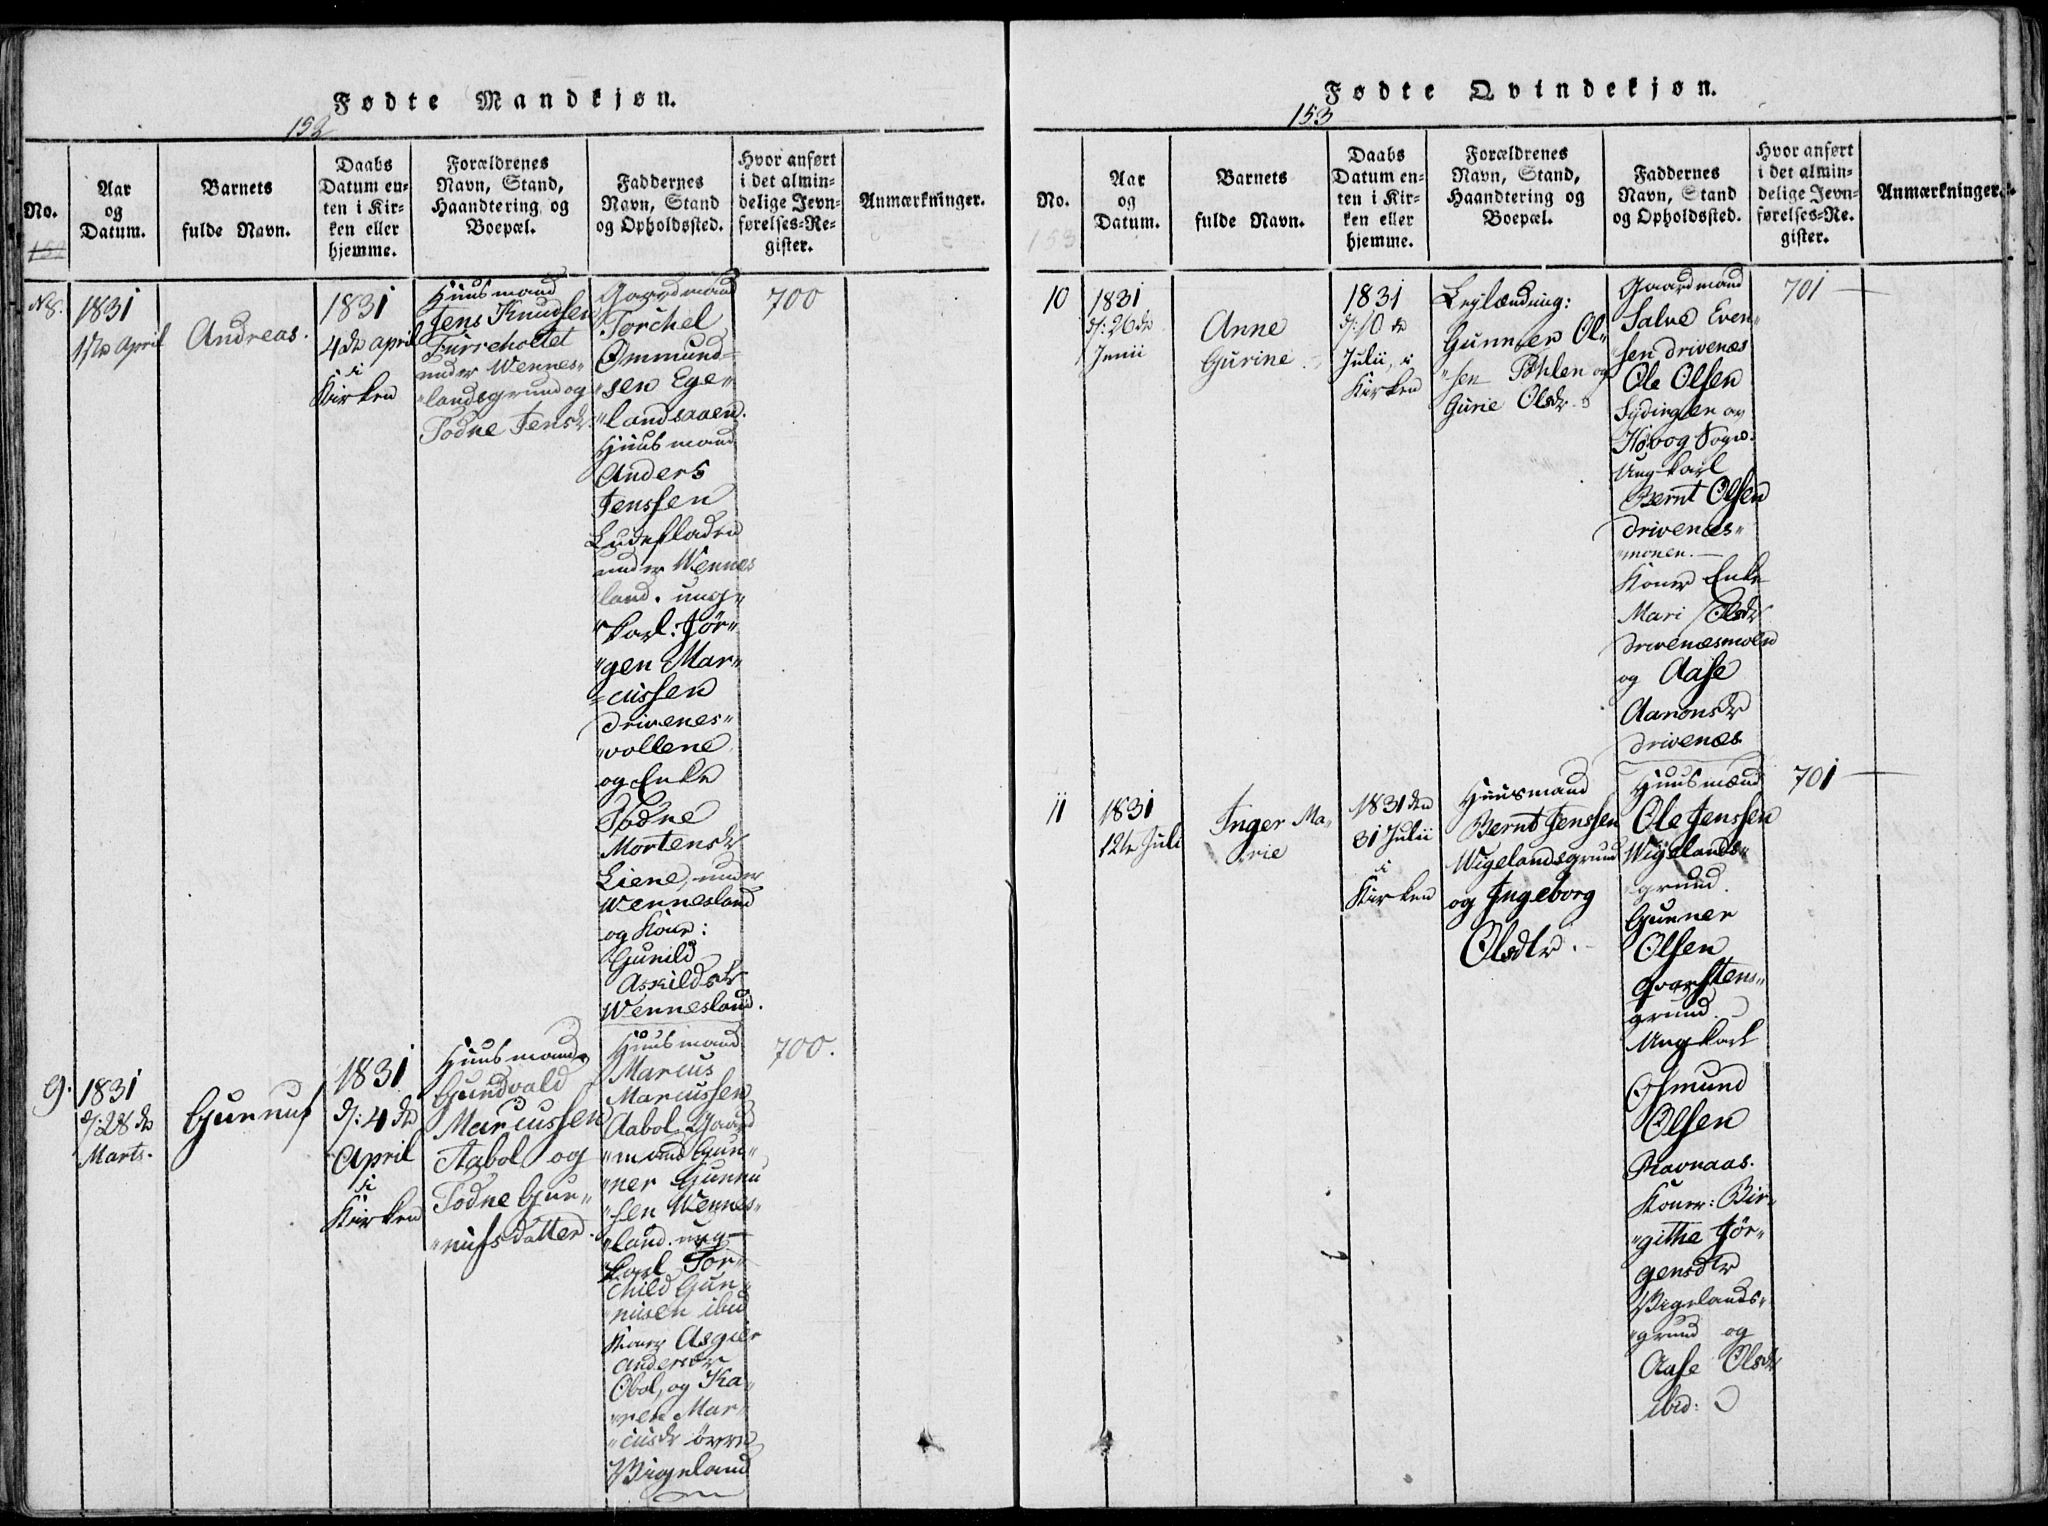 Fødte Mandkjøn.
152
No.
Aar
og
Datum.
Barnets
fulde Navn.
Daabs
Datum en-
ten i Kir-
ken eller
hjemme.
Forældrenes
Navn, Stand,
Haandtering og
Boepæl.
Faddernes
Navn, Stand
og Opholdssted.
Hvor anført
i det almin-
delige Jevn-
førelses-Re-
gister.
Anmærkninger.
8.
1831
April
Andreas.
1831
4de April
i
Kirken
Huusmand
Jens Knudsen
Furreholtet
under Wennes-
landsgrund og
Todne Jensdr
Gaardmand
Torchel
Ommund-
sen Ege-
landsaaen.
Huusmand
Anders
Jenssen
under Wennes
land. ung-
karl: Jör-
gen Mar-
cussen
Drivenes-
vollene
og Enke
Todne
Mortensdr
Liene, under
Wennesland
og Kone:
Gunild
Askildsdr
Wennesland.
700
9.
1831
d: 28de
Marts.
Gunnuf
1831
d: 4de
April
i
Kirken
Huusmand
Gundvald
Marcussen
Aabol og
Todne Gun-
nufsdatter.
Huusmand
Marcus
Marcussen
Aabol. Gaard
mand Gun-
ner Gunnu
sen Wennes-
land. ung-
karl Tor-
child Gun-
nusen ibid
Koner Asgier
Andersdr
Obol, og Ka-
ren Mar-
cusdr øvre
Wigeland
700.
Fødte Qvindekjøn.
153
No.
153
Aar
og
Datum.
Barnets
fulde Navn.
Daabs
Datum en-
ten i Kir-
ken eller
hjemme.
Forældrenes
Navn, Stand,
Haandtering og
Boepæl.
Faddernes
Navn, Stand
og Opholdssted.
Hvor anført
i det almin-
delige Jevn-
førelses-Re-
gister.
Anmærkninger.
10
1831
d: 26de
Junii
Anne
Gurine
1831
d: 10de
Julii, i
Kirken
Leylænding:
Gunner Ol-
sen og
Gurie Olsdr.
Gaardmand
Salve Even-
sen Drivenæs
Ole Olsen
Høvog Sogn.
Ungkarl
Bernt Olsen
Drivenæs-
monen.
Koner Enke
Mari Olsdr
Drivenæsmoen
og Aase
Aaronsdr
Drivenæs
701
11
1831
12te Juli
Inger Ma-
rie
1831 den
31 Julii
i
Kirken
Huusmand
Bernt Jenssen
Wigelandsgrund
og Ingeborg
Olsdtr.
Huusmænd
Ole Jenssen
Wigelands-
grund.
Gunner
Olsen
Qvarstens-
grund.
Ungkarl
Osmund
Olsen
Ravnaas.
Koner: Bir-
githe Jör-
gensdtr
Wigelands-
grund og
Aase Olsdr
ibid:
701